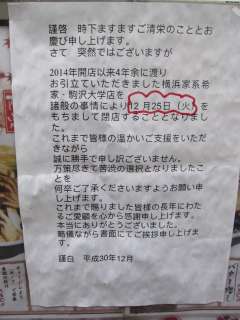 謹啓　時下ますますご清栄のこととお
慶び申し上げます。
さて　突然ではございますが
2014年開店以来4年余に渡り
お引立ていただきました横浜家系希
家・駒沢大学店を
諸般の事情により12月25日（火）
をもちまして閉店することとなりまし
た。
これまで皆様の温かいご支援をいただ
きながら
誠に勝手で申し訳ございません。
万策尽きて苦渋の選択となりましたこ
とを
何卒ご了承くださいますようお願い申
し上げます。
これまで賜りました皆様の長年にわた
るご愛顧を心から感謝申し上げます。
本当にありがとうございました。
略儀ながら書面にてご挨拶申し上げま
す。
謹白　平成30年12月